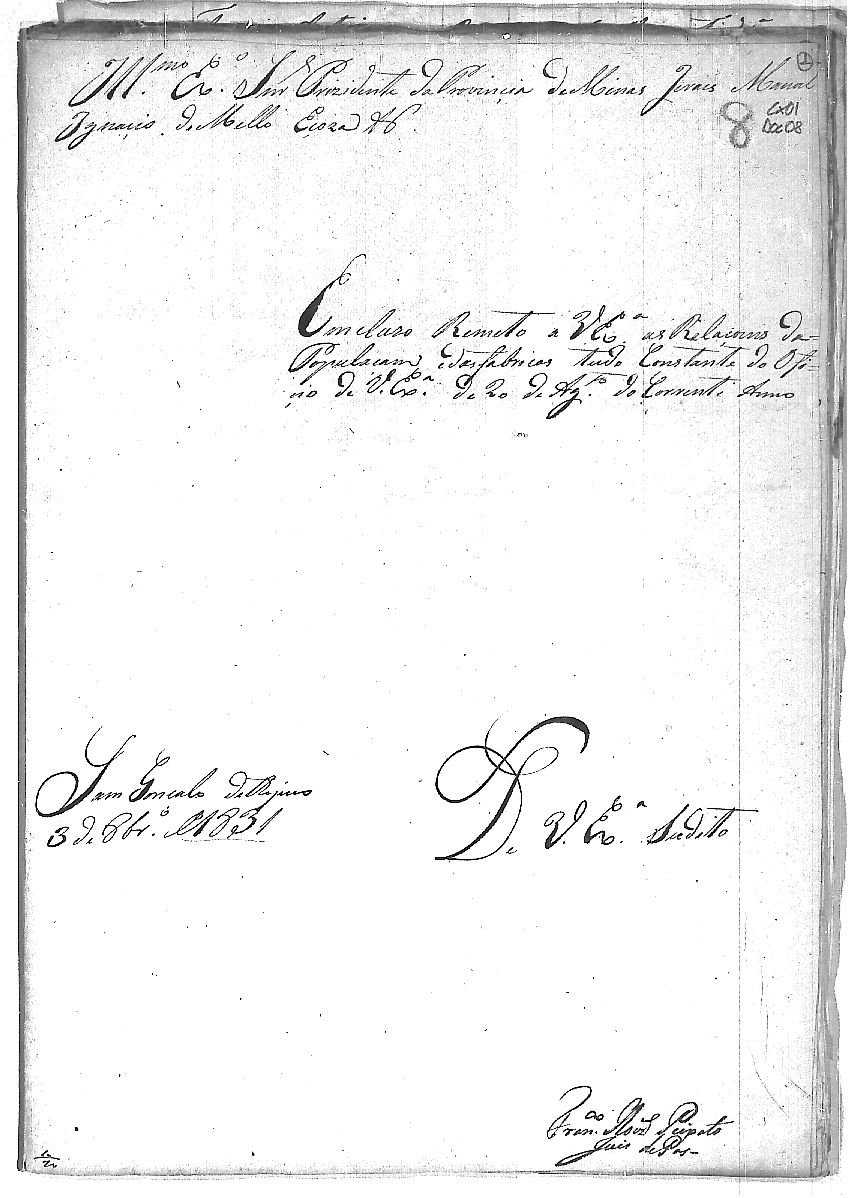 Ill.mo Ex.o Snr Prezidente da Provincia de Minas Jerais Manoel
Ignacio de Mello Eioza
8
CX01
Doc 08
1
Emcluzo Remeto a V Ex.a as Relaçoins da
Populacam edas fabricas tudo Constante do Ofi-
cio de V. Ex.a de 20 de Ag.to do Corrente Anno
Sam Goncalo
3 de 8br.o 1831
De V. Ex.a Sudito
Fran.co Peixoto
Juis de Pas